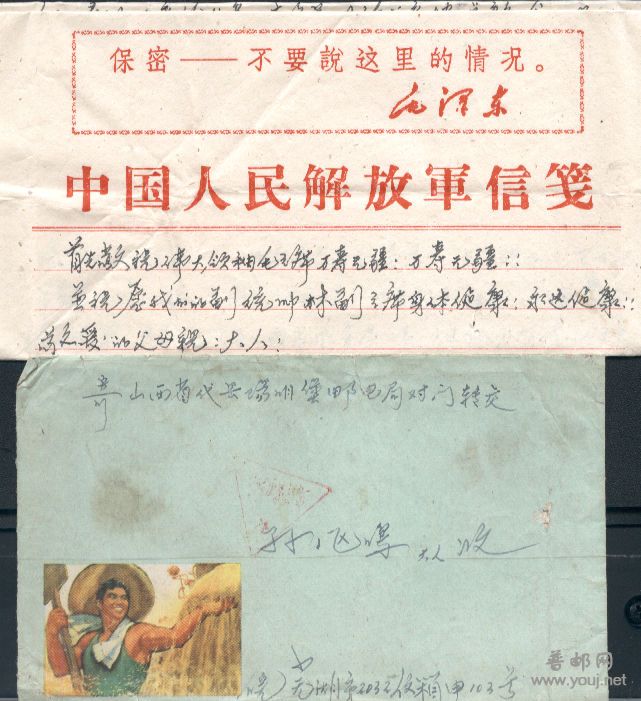 保密——不要說这里的情况。
毛泽东
中国人民解放軍信笺
首先敬祝伟大领袖毛主席万寿无疆！万寿无疆！！
并祝 副统帅林副主席身体健康！永远健康！！
敬爱的父母親：大人！
寄山西省代县 明堡邮电局对门转交
孙 大人收
芜湖市203 103号
普邮网
www.youj.net